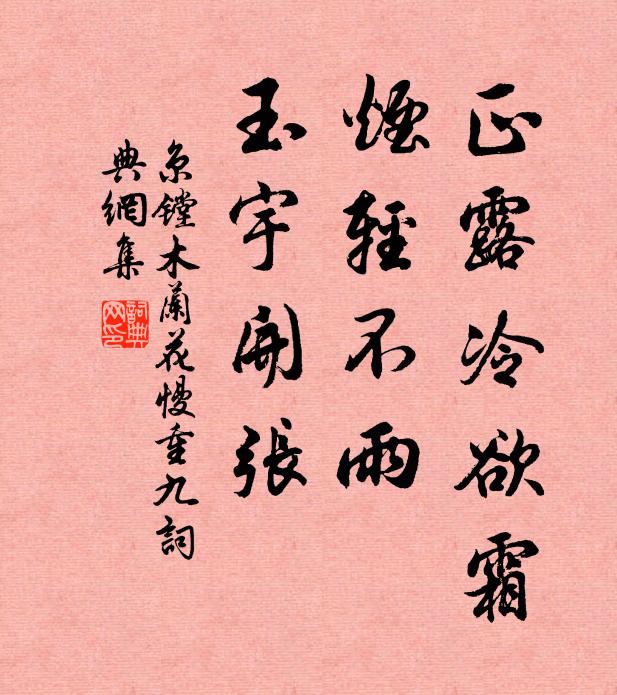 正露冷欲霜
煙輕不雨
玉宇開張
京鏜木蘭花慢重九詞
典網集
詞典网印